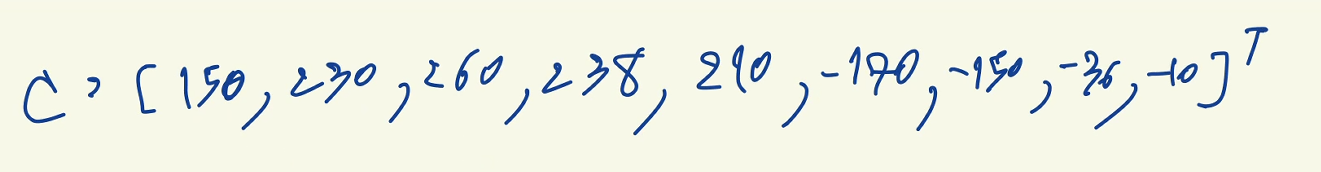 C = [150, 230, 260, 238, 210, -170, -150, -36, -10]^T